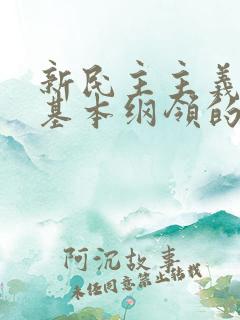 新民主主義
基本纲领的
阿沉故事
未经同意禁止转载